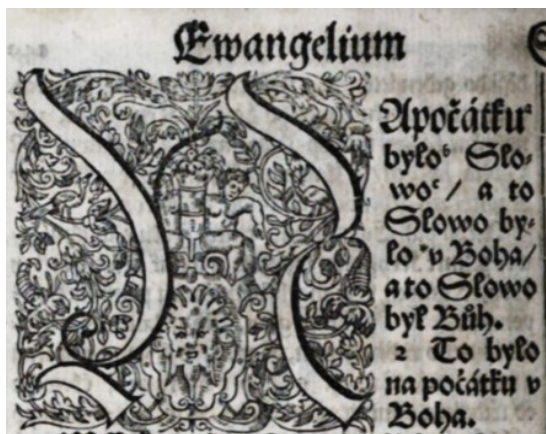 Ewangelium
NApočátku
było b Sło-
wo c / a to
Słowo by-
ło v Boha/
a to Słowo
był Bůh.
2 To było
na počátku v
Boha.